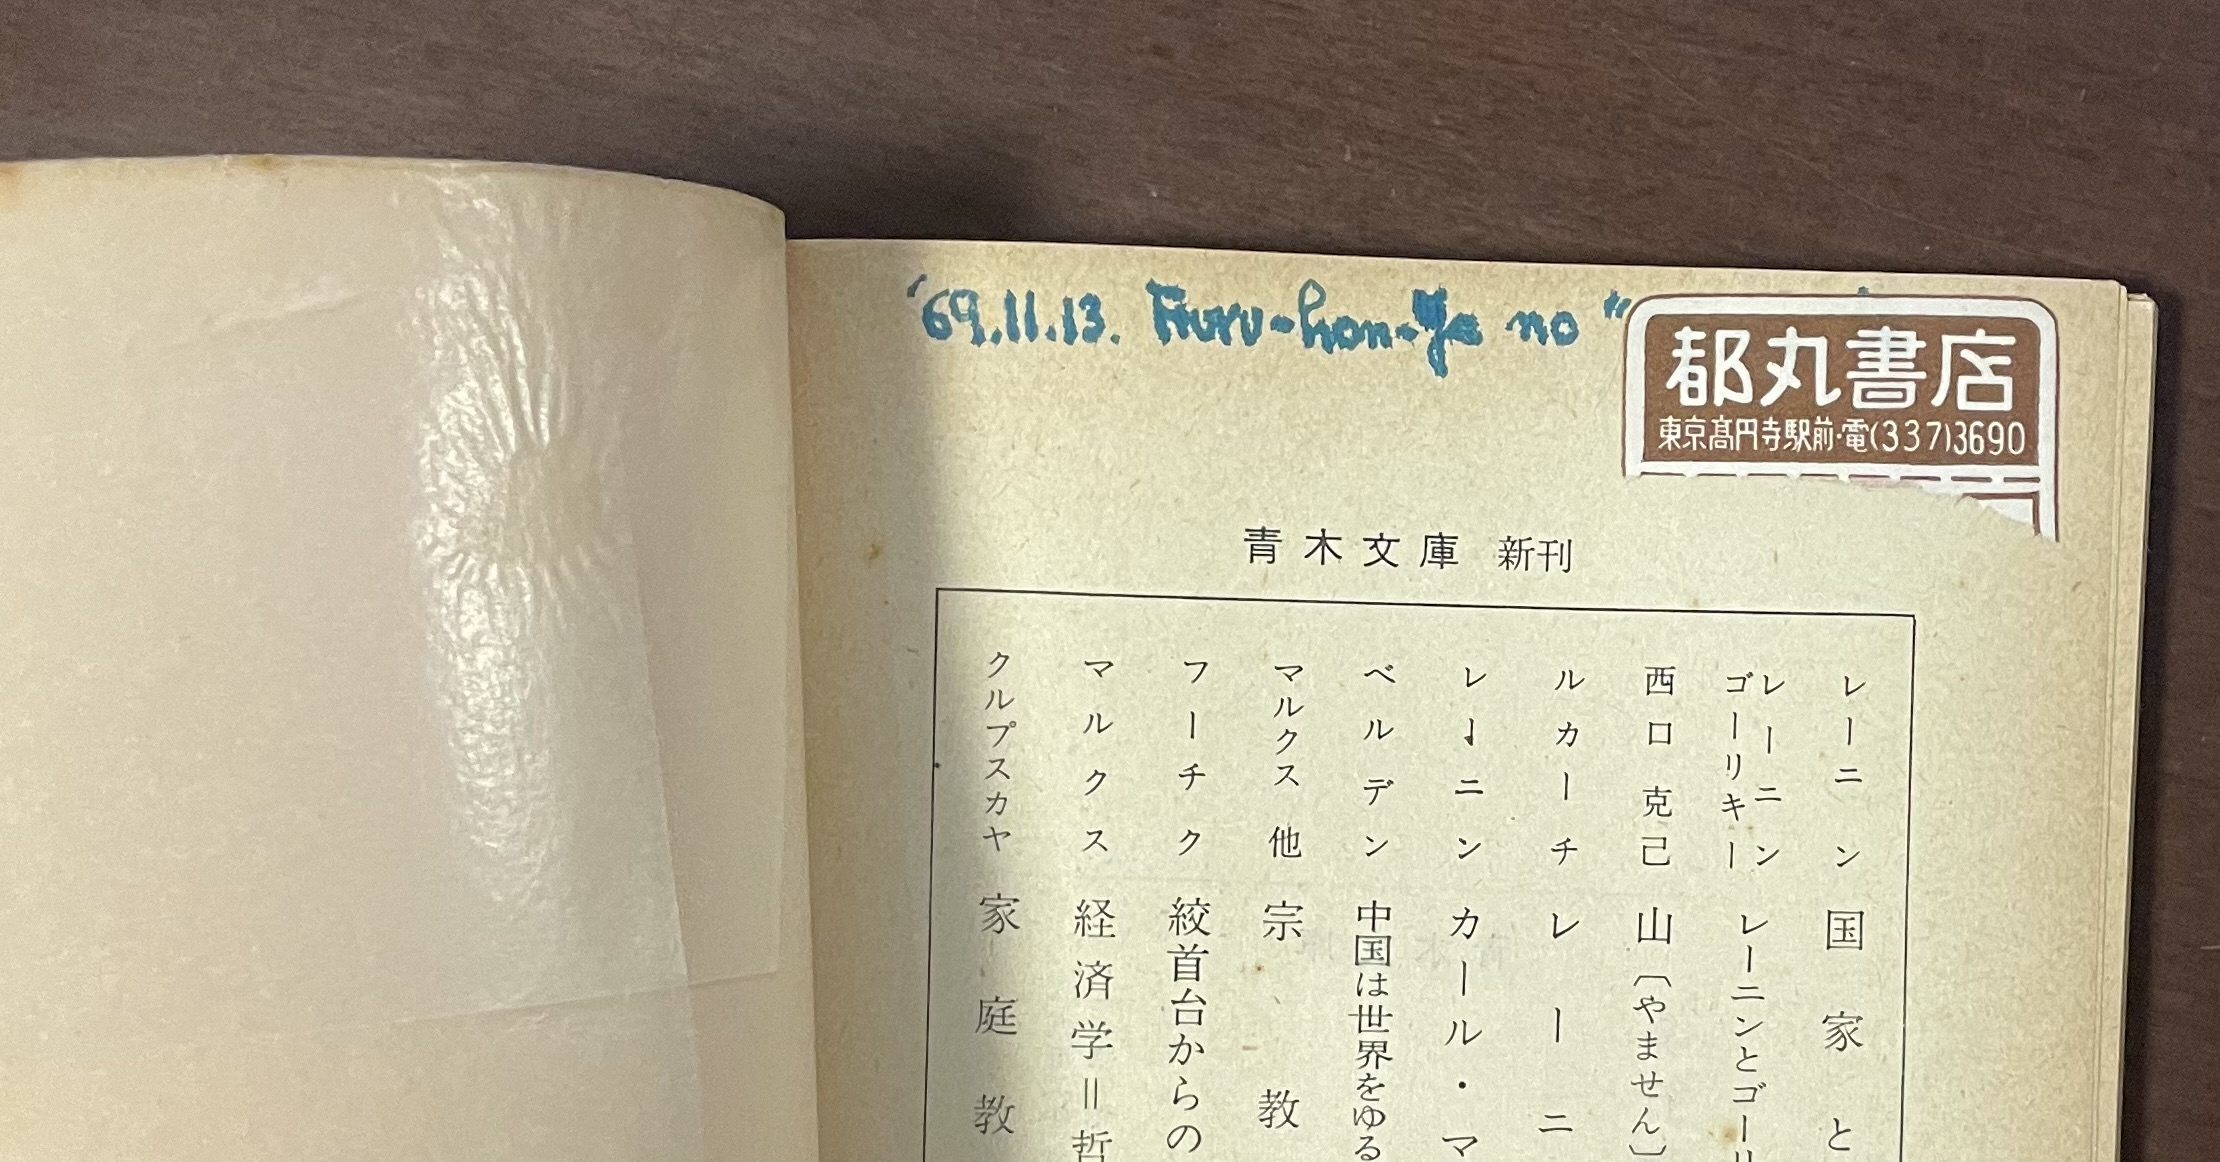 '69.11.13. Furu-hon-Ya no "
都丸書店
東京高円寺駅前・電(337)3690
青木文庫 新刊
レーニン 国家と
レーニン ゴーリキー レーニンとゴーリ
西口克己 山〔やません〕
ルカーチ レーニ
レーニン カール・マ
ベルデン 中国は世界をゆる
マルクス他 宗教
フーチク 絞首台からの
マルクス 経済学＝哲
クルプスカヤ 家庭教